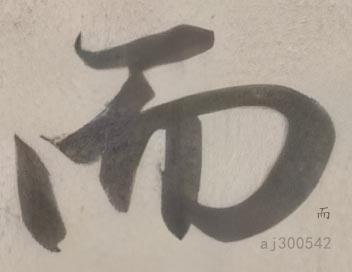 而
而
aj300542